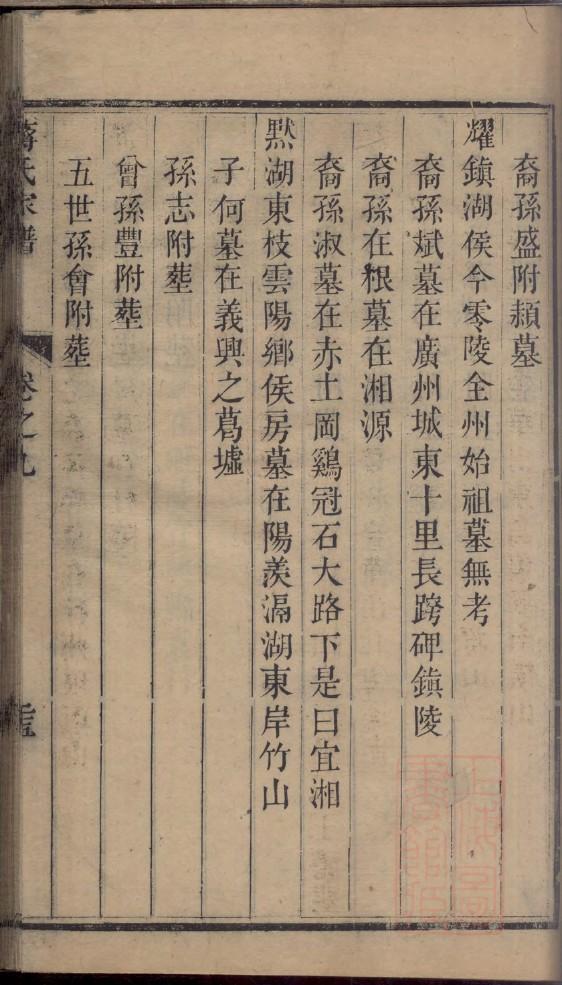 裔孫盛附頴墓
耀鎮湖侯今零陵全州始祖墓無考
裔孫斌墓在廣州城東十里長跨碑鎮陵
裔孫在根墓在湘源
裔孫淑墓在赤土岡鷄冠石大路下是曰宜湘
㸃湖東枝雲陽鄉侯房墓在陽羨滆湖東岸竹山
子何墓在義興之葛墟
孫志附塟
曾孫豐附塟
五世孫會附塟
蔣氏家譜
卷之九